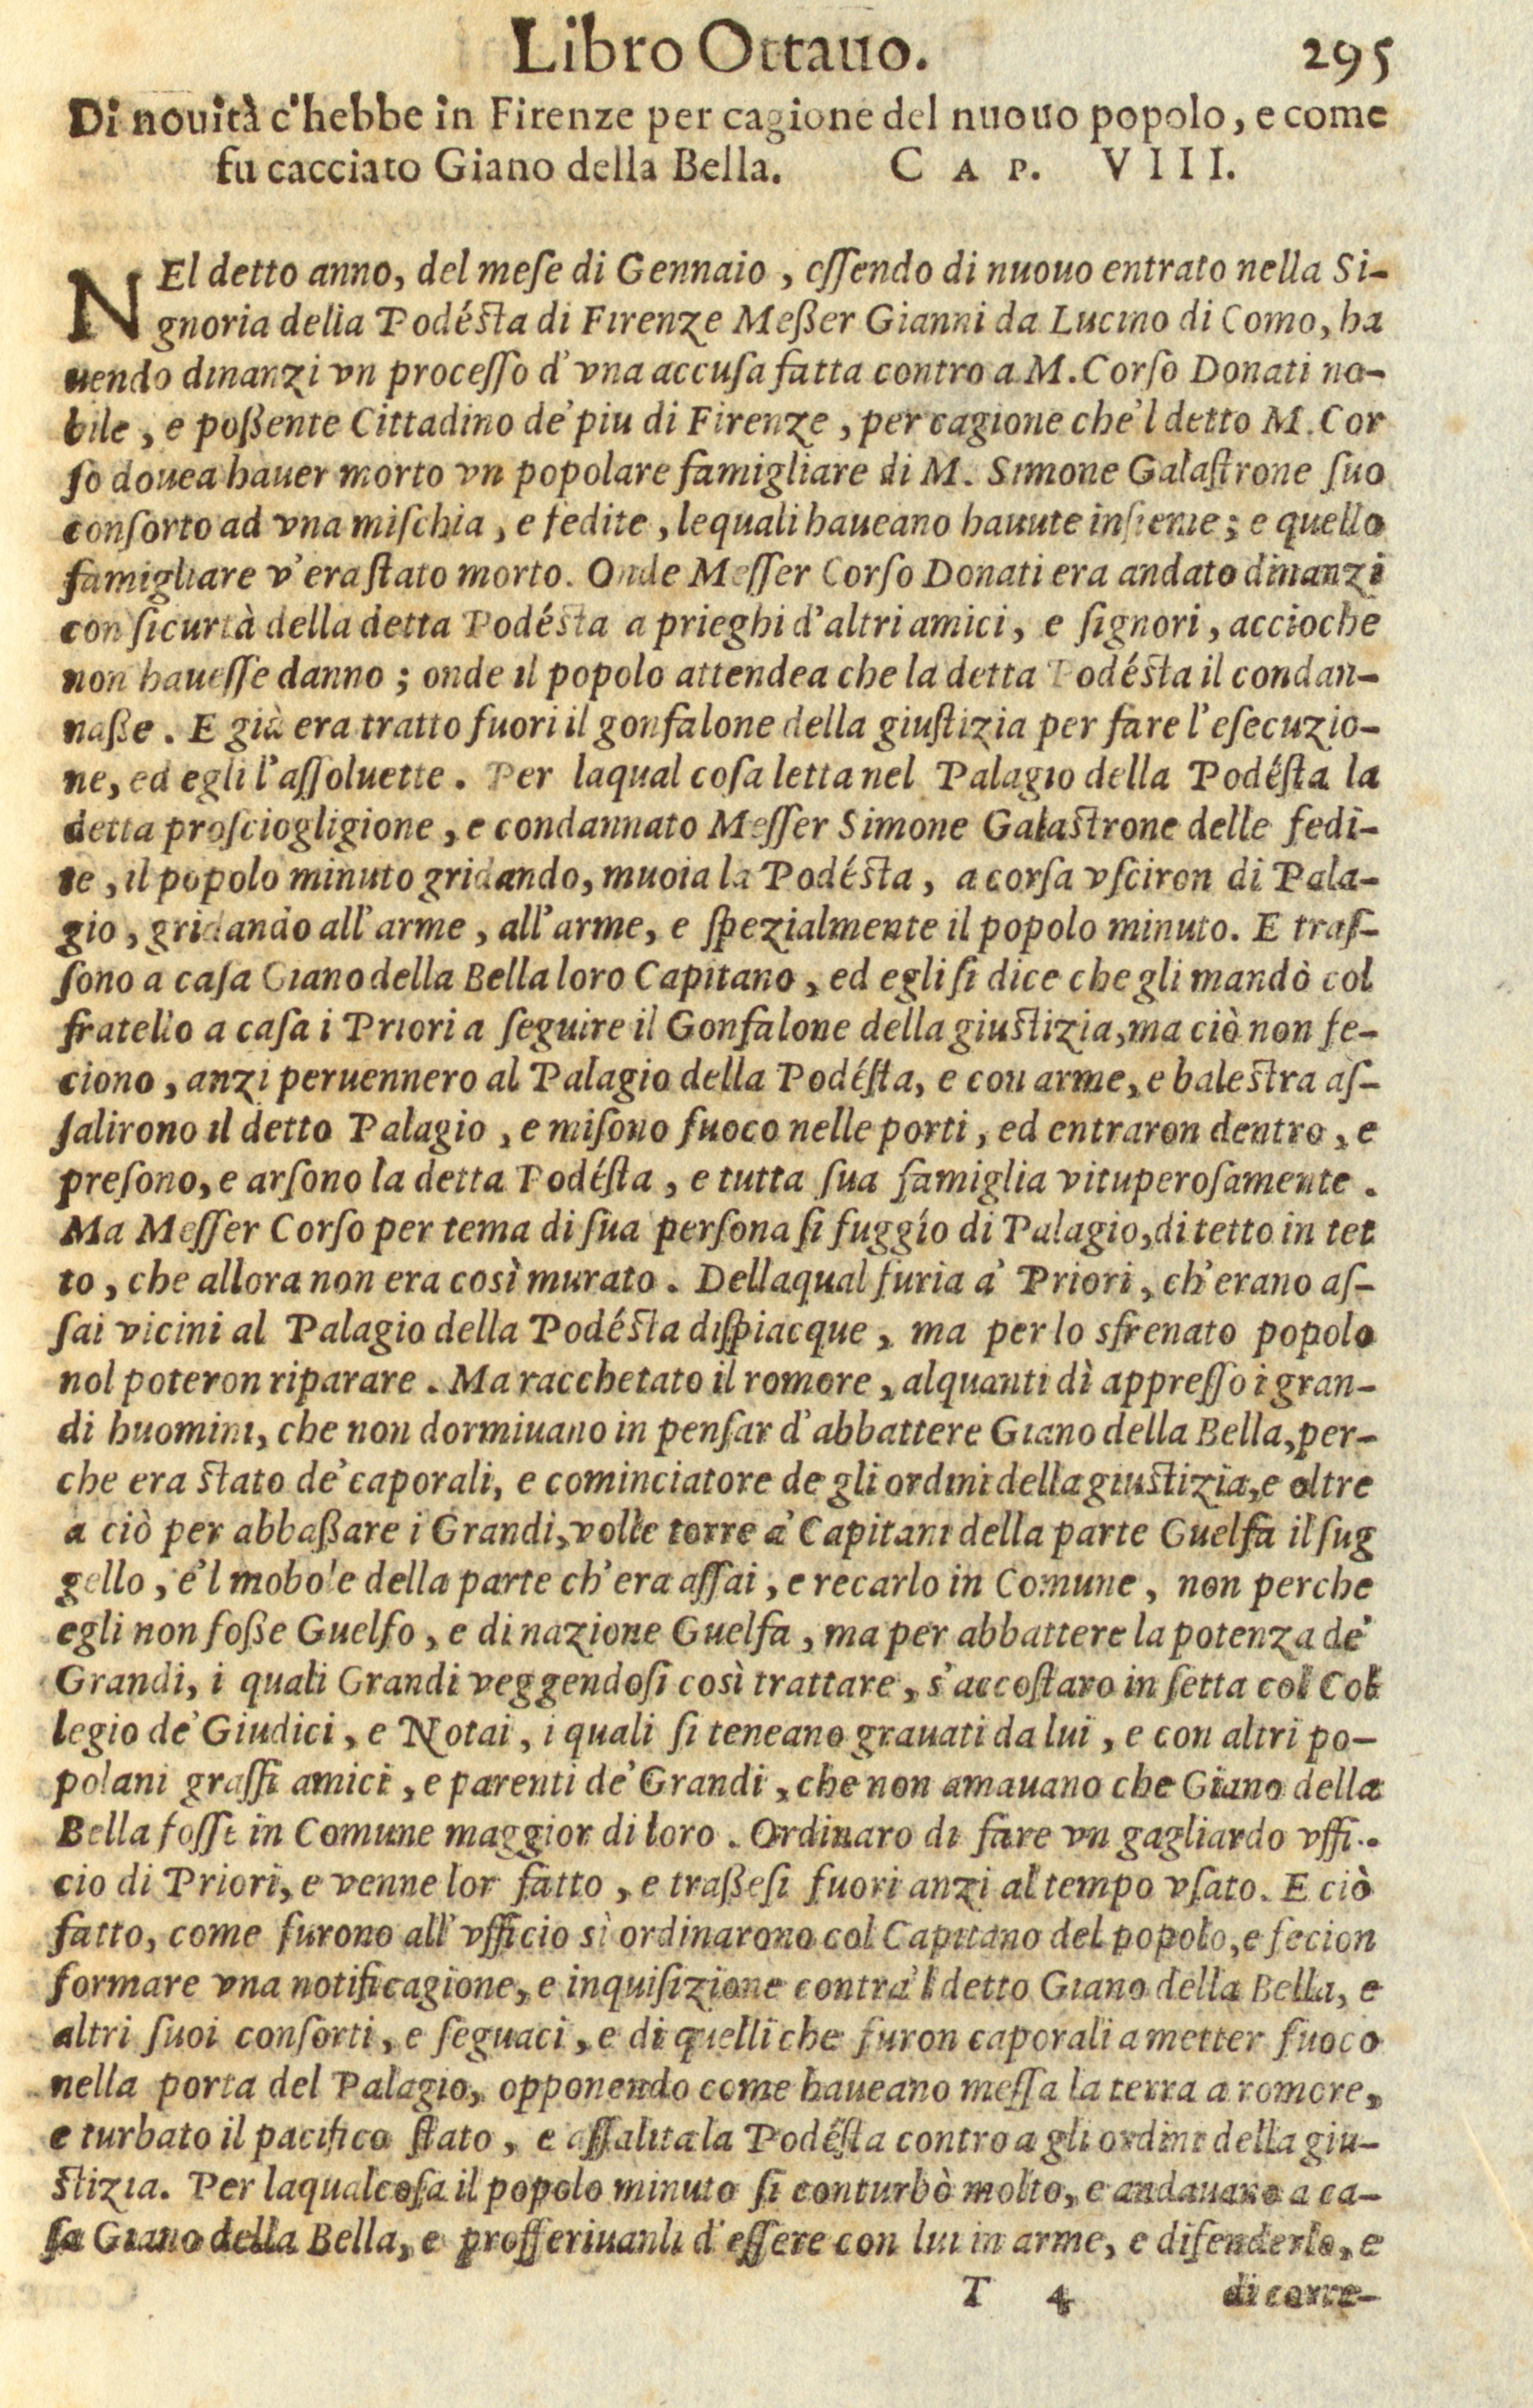 Libro Ottauo. 295
Di nouità c'hebbe in Firenze per cagione del nuouo popolo, e come
fu cacciato Giano della Bella. CAP. VIII.
NEl detto anno, del meſe di Gennaio, eſſendo di nuouo entrato nella Si-
gnoria della Podéſta di Firenze Meßer Gianni da Lucino di Como, ha
uendo dinanzi vn proceſſo d'vna accuſa fatta contro a M. Corſo Donati no-
bile, e poßente Cittadino de' piu di Firenze, per cagione che'l detto M. Cor
ſo douea hauer morto vn popolare famigliare di M. Simone Galaſtrone ſuo
conſorto ad vna miſchia, e fedite, lequali haueano hauute inſieme; e quello
famigliare v'era ſtato morto. Onde Meſſer Corſo Donati era andato dinanzi
con ſicurtà della detta Podéſta a prieghi d'altri amici, e ſignori, accioche
non haueſſe danno; onde il popolo attendea che la detta Podéſta il condan-
naße. E già era tratto fuori il gonfalone della giuſtizia per fare l'eſecuzio-
ne, ed egli l'aſſoluette. Per laqual coſa letta nel Palagio della Podéſta la
detta proſciogligione, e condannato Meſſer Simone Galaſtrone delle fedi-
te, il popolo minuto gridando, muoia la Podéſta, a corſa vſciron di Pala-
gio, gridando all'arme, all'arme, e ſpezialmente il popolo minuto. E traſ-
ſono a caſa Giano della Bella loro Capitano, ed egli ſi dice che gli mandò col
fratello a caſa i Priori a ſeguire il Gonfalone della giuſtizia, ma ciò non fe-
ciono, anzi peruennero al Palagio della Podéſta, e con arme, e baleſtra aſ-
ſalirono il detto Palagio, e miſono fuoco nelle porti, ed entraron dentro, e
preſono, e arſono la detta Podéſta, e tutta ſua famiglia vituperoſamente.
Ma Meſſer Corſo per tema di ſua perſona ſi fuggío di Palagio, di tetto in tet
to, che allora non era così murato. Dellaqual furia a' Priori, ch'erano aſ-
ſai vicini al Palagio della Podéſta diſpiacque, ma per lo sfrenato popolo
nol poteron riparare. Ma racchetato il romore, alquanti dì appreſſo i gran-
di huomini, che non dormiuano in penſar d'abbattere Giano della Bella, per-
che era ſtato de' caporali, e cominciatore de gli ordini della giuſtizia, e oltre
a ciò per abbaßare i Grandi, volle torre a' Capitani della parte Guelfa il ſug
gello, e'l mobole della parte ch'era aſſai, e recarlo in Comune, non perche
egli non foße Guelfo, e di nazione Guelfa, ma per abbattere la potenza de'
Grandi, i quali Grandi veggendoſi così trattare, s'accoſtaro in ſetta col Col
legio de' Giudici, e Notai, i quali ſi teneano grauati da lui, e con altri po-
polani graſſi amici, e parenti de' Grandi, che non amauano che Giano della
Bella foſſe in Comune maggior di loro. Ordinaro di fare vn gagliardo vffi-
cio di Priori, e venne lor fatto, e traßeſi fuori anzi al tempo vſato. E ciò
fatto, come furono all'vfficio sì ordinarono col Capitano del popolo, e fecion
formare vna notificagione, e inquiſizione contra'l detto Giano della Bella, e
altri ſuoi conſorti, e ſeguaci, e di quelli che furon caporali a metter fuoco
nella porta del Palagio, opponendo come haueano meſſa la terra a romore,
e turbato il pacifico ſtato, e aſſalita la Podéſta contro a gli ordini della giu-
ſtizia. Per laqualcoſa il popolo minuto ſi conturbò molto, e andauano a ca-
ſa Giano della Bella, e profferiuanli d'eſſere con lui in arme, e difenderlo, e
T 4 di corre-